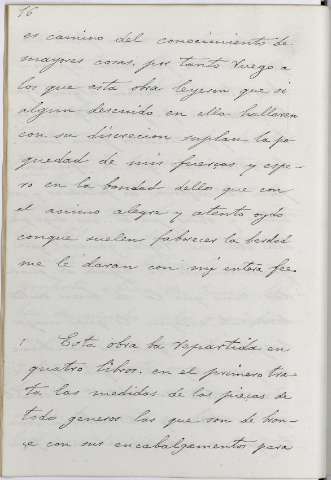 16
es camino del conocimiento de
mayores cosas, por tanto ruego a
los que esta obra leyesen que si
algun descuido en ella hallaren
con su discrecion suplan la po
quedad de mis fuerças y espe-
ro en la bondad dellos que con
el animo alegre y atento oydo
conque suelen faborecer la berdad
me le daran con my entera fee.
Esta obra ba repartida en
quatro libros. en el primero tra-
ta las medidas de las pieças de
todo genero las que son de bron-
çe con sus encabalgamentos para